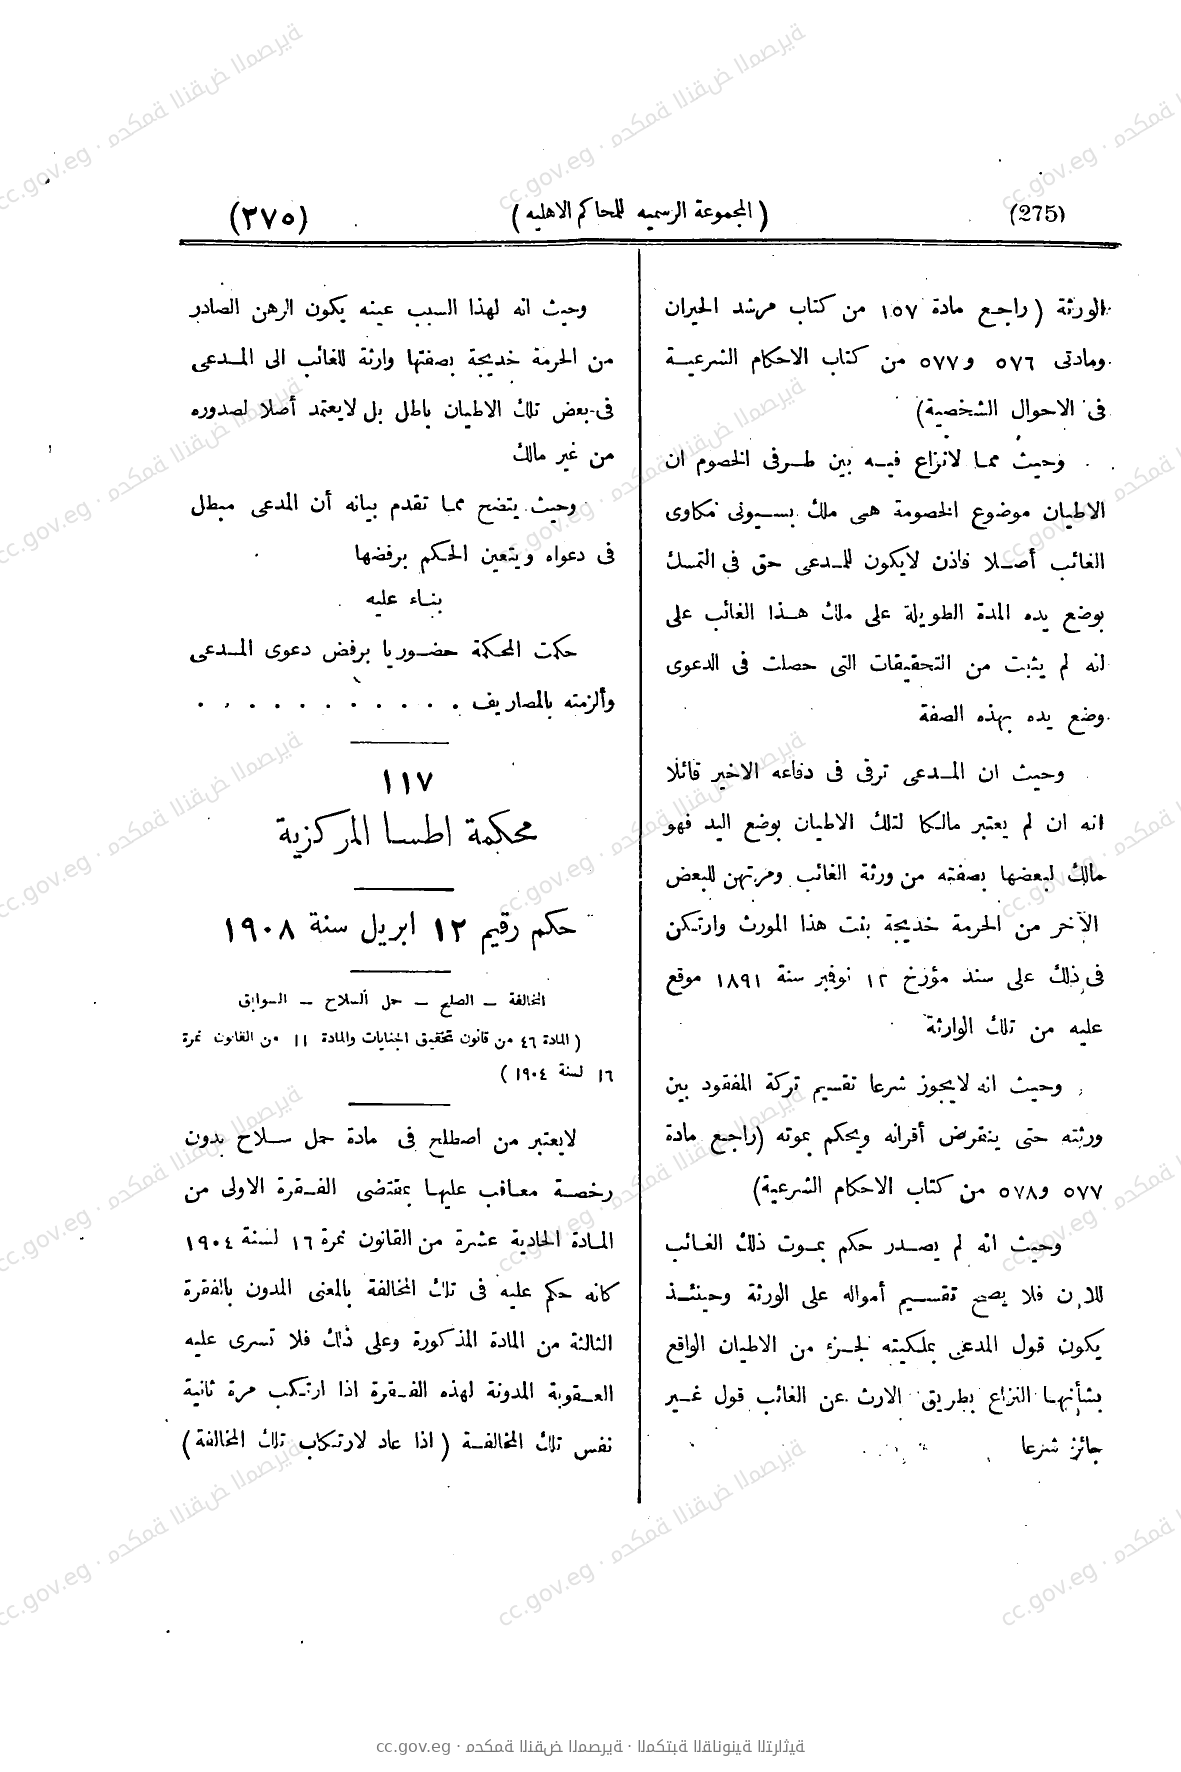 (275)
( المجموعة الرسميه للمحاكم الاهليه )
(٢٧٥)
الورثة ( راجع مادة ١٥٧ من كتاب مرشد الحيران
ومادتى ٥٧٦ و٥٧٧ من كتاب الاحكام الشرعية
فى الاحوال الشخصية)
وحيث مما لانزاع فيه بين طرفى الخصوم ان
الاطيان موضوع الخصومة هى ملك بسيونى مكاوى
الغائب أصلا فاذن لايكون للمدعى حق فى التمسك
بوضع يده المدة الطويلة على ملك هذا الغائب على
انه لم يثبت من التحقيقات التى حصلت فى الدعوى
وضع يده بهذه الصفة
وحيث ان المدعى ترقى فى دفاعه الاخير قائلا
انه ان لم يعتبر مالكا لتلك الاطيان بوضع اليد فهو
مالك لبعضها بصفته من ورثة الغائب ومرتهن للبعض
الآخر من الحرمة خديجة بنت هذا المورث وارتكن
فى ذلك على سند مؤرخ ١٢ نوفمبر سنة ١٨٩١ موقع
عليه من تلك الوارثة
وحيث انه لايجوز شرعا تقسيم تركة المفقود بين
ورثته حتى ينقرض أقرانه ويحكم بموته (راجع مادة
٥٧٧ و٥٧٨ من كتاب الاحكام الشرعية)
وحيث انه لم يصدر حكم بموت ذلك الغائب
للآن فلا يصح تقسيم أمواله على الورثة وحينئذ
يكون قول المدعى بملكيته لجزء من الاطيان الواقع
بشأنها النزاع بطريق الارث عن الغائب قول غير
جائز شرعا
وحيث انه لهذا السبب عينه يكون الرهن الصادر
من الحرمة خديجة بصفتها وارثة للغائب الى المدعى
فى بعض تلك الاطيان باطل بل لايعتمد أصلا لصدوره
من غير مالك
وحيث يتضح مما تقدم بيانه أن المدعى مبطل
فى دعواه ويتعين الحكم برفضها
بناء عليه
حكمت المحكمة حضوريا برفض دعوى المدعى
وألزمته بالمصاريف . . . . . . . . . . .
١١٧
محكمة اطسا المركزية
حكم رقيم ١٢ ابريل سنة ١٩٠٨
المخالفة – الصلح – حمل السلاح – السوابق
( المادة ٤٦ من قانون تحقيق الجنايات والمادة ١١ من القانون نمرة
١٦ لسنة ١٩٠٤ )
لايعتبر من اصطلح فى مادة حمل سلاح بدون
رخصة معاقب عليها بمقتضى الفقرة الاولى من
المادة الحادية عشرة من القانون نمرة ١٦ لسنة ١٩٠٤
كانه حكم عليه فى تلك المخالفة بالمعنى المدون بالفقرة
الثالثة من المادة المذكورة وعلى ذلك فلا تسرى عليه
العقوبة المدونة لهذه الفقرة اذا ارتكب مرة ثانية
نفس تلك المخالفة ( اذا عاد لارتكاب تلك المخالفة )
cc.gov.eg · محكمة النقض المصرية · المكتبة القانونية التراثية